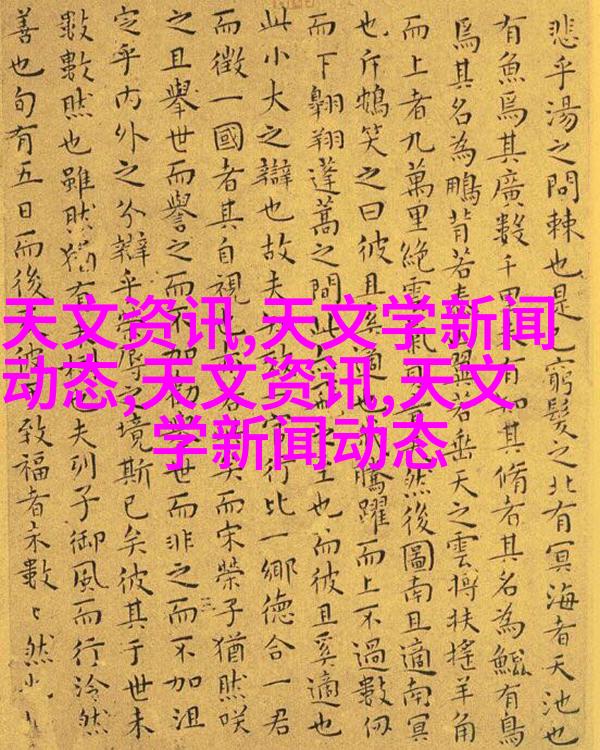 悲乎湯之問棘也是已窮髮之北有冥海者天池也
有魚焉其廣數千里未有知其脩者其名為鯤有鳥
焉其名為鵬背若泰山翼若垂天之雲摶扶搖羊角
而上者九萬里絕雲氣負青天然後圖南且適南冥
也斥鴳笑之曰彼且奚適也我騰躍而上不過數仞
而下翱翔蓬蒿之間此亦飛之至也而彼且奚適也
此小大之辯也故夫知效一官行比一鄉德合一君
而徵一國者其自視也亦若此矣而宋榮子猶然咲
之且舉世而譽之而不加勸舉世而非之而不加沮
定乎內外之分辯乎榮辱之境斯已矣彼其于世未
數數然也雖然猶有未樹也夫列子御風而行泠然
善也旬有五日而後反彼於致福者未數〻然也
天文资讯,天文学新闻
动态,天文资讯,天文
学新闻动态